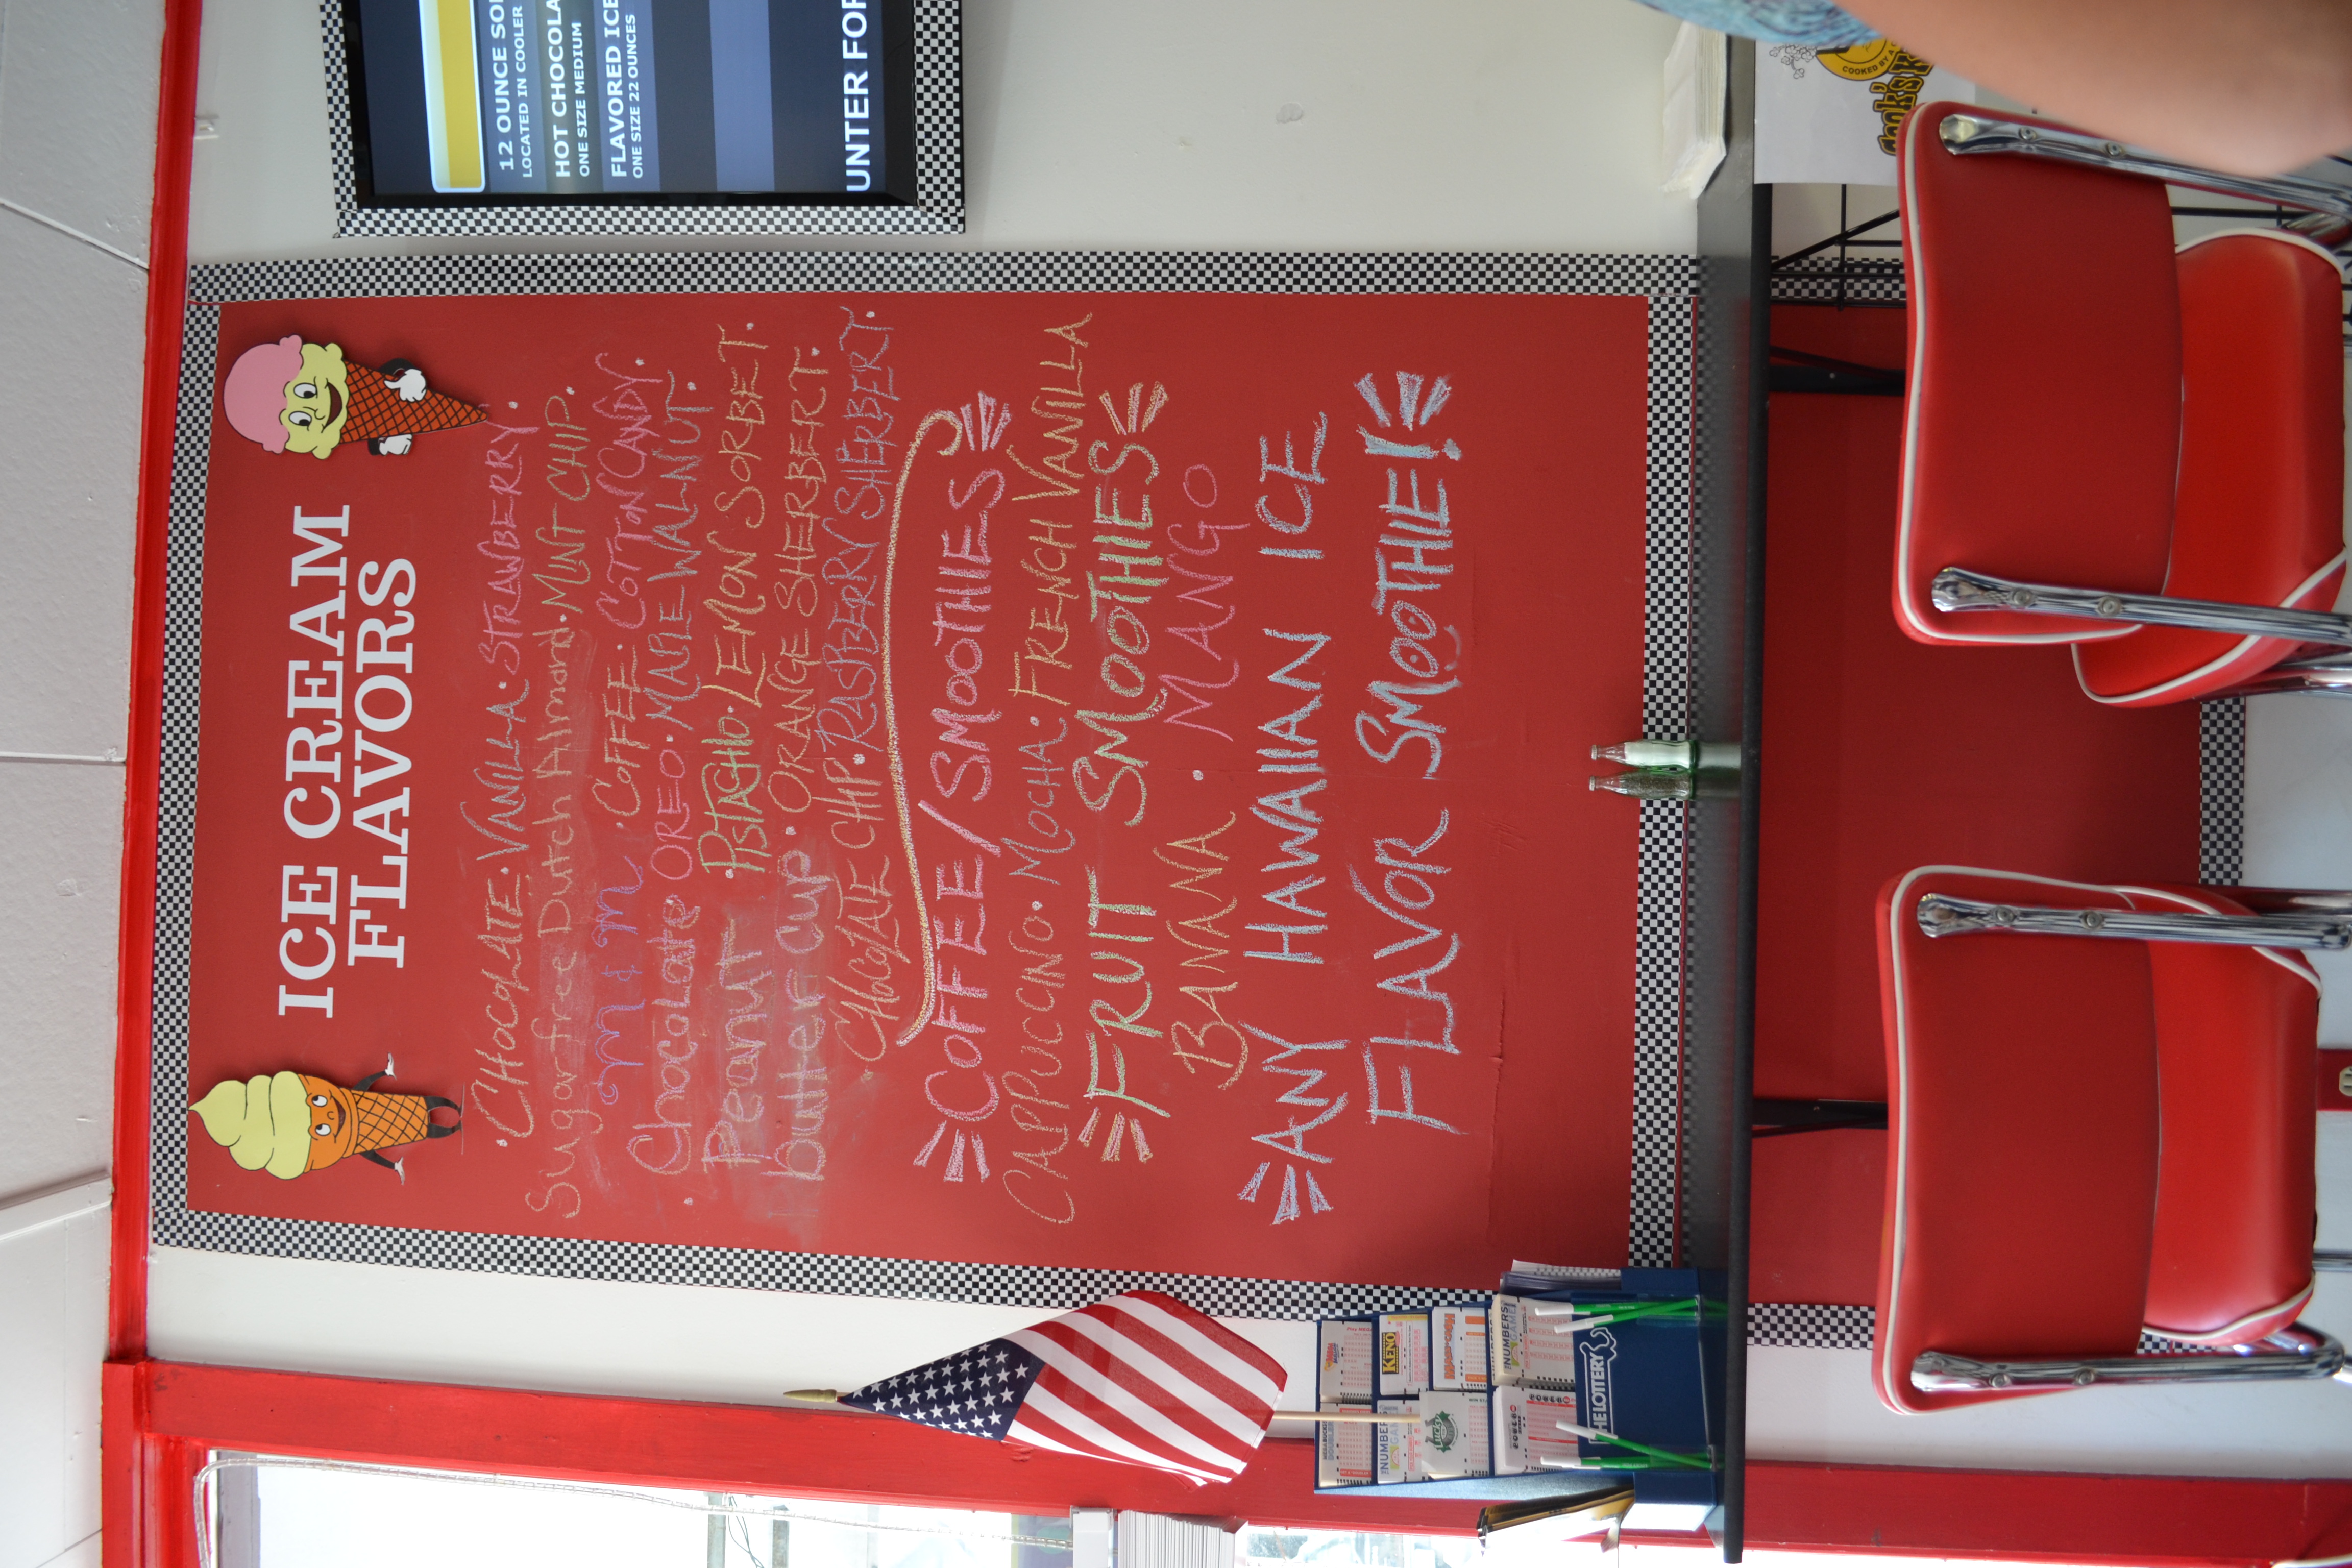 ICE CREAM
FLAVORS
• CHOCOLATE • VANILLA • STRAWBERRY •
Sugar free Dutch Almond • MINT CHIP •
M & M • COFFEE • COTTON CANDY •
• Chocolate • OREO • MAPLE WALNUT •
Peanut • PISTACHIO • LEMON SORBET •
butter cup • ORANGE SHERBERT •
• CHOCOLATE CHIP • RASPBERRY SHERBERT •
COFFEE/SMOOTHIES
CAPPUCCINO • MOCHA • FRENCH VANILLA
FRUIT SMOOTHIES
BANANA • MANGO
ANY HAWAIIAN ICE
FLAVOR SMOOTHIE!
12 OUNCE SO
LOCATED IN COOLER
HOT CHOCOLA
ONE SIZE MEDIUM
FLAVORED ICE
ONE SIZE 22 OUNCES
UNTER FOR
MEGABUCKS
DOUBLER
THE NUMBERS
GAME
KENO
Lucky
MASS CASH
THE NUMBERS
GAME
THE LOTTERY
COOKED BY A
Cook's K